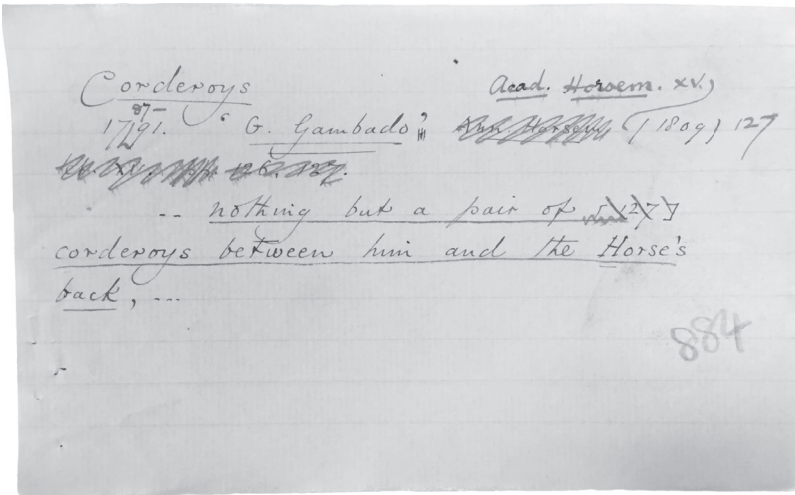 Corderoys Acad. Horsem. xv.,
87–
1791. ‘G. Gambado’ Ann. Horsem. (1809) 127
-- nothing but a pair of [127]
corderoys between him and the Horse's
back, ---
884